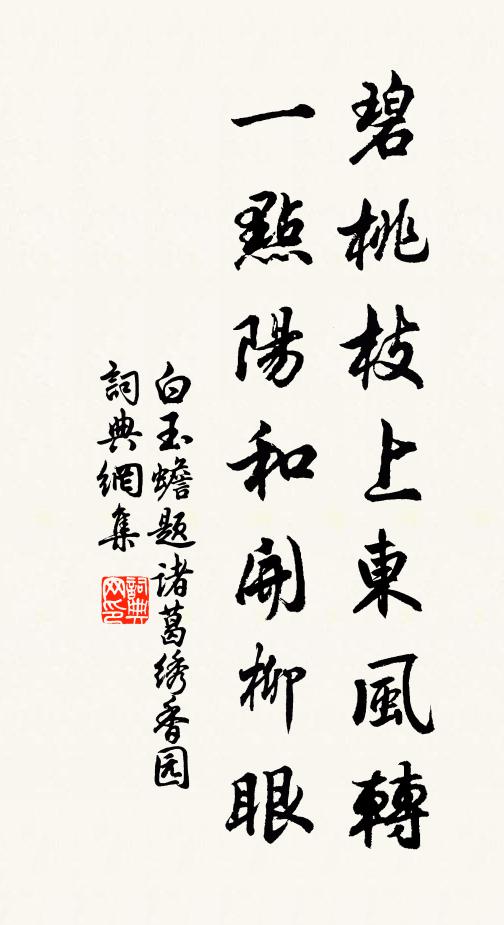 碧桃枝上東風轉
一點陽和開柳眼
白玉蟾题诸葛绣香园
詞典網集
詞典网印